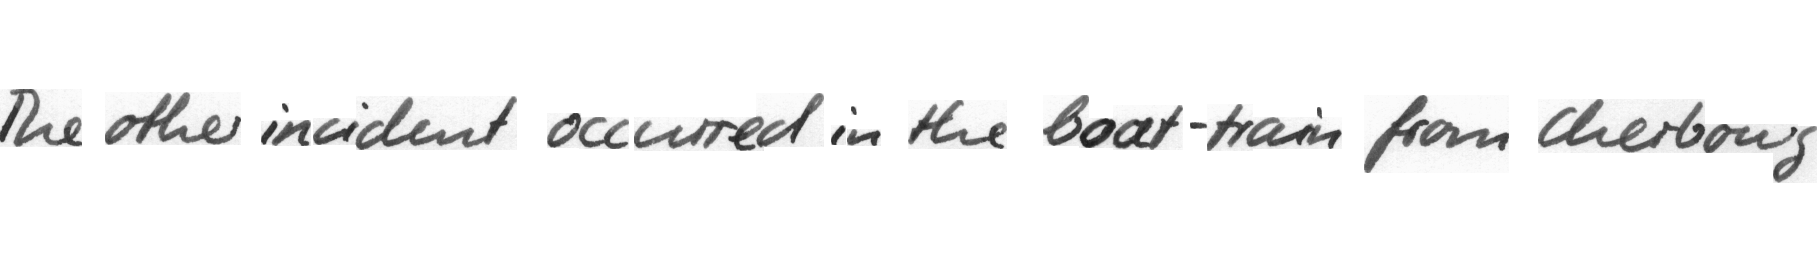 The other incident occurred in the boat-train from Cherbourg